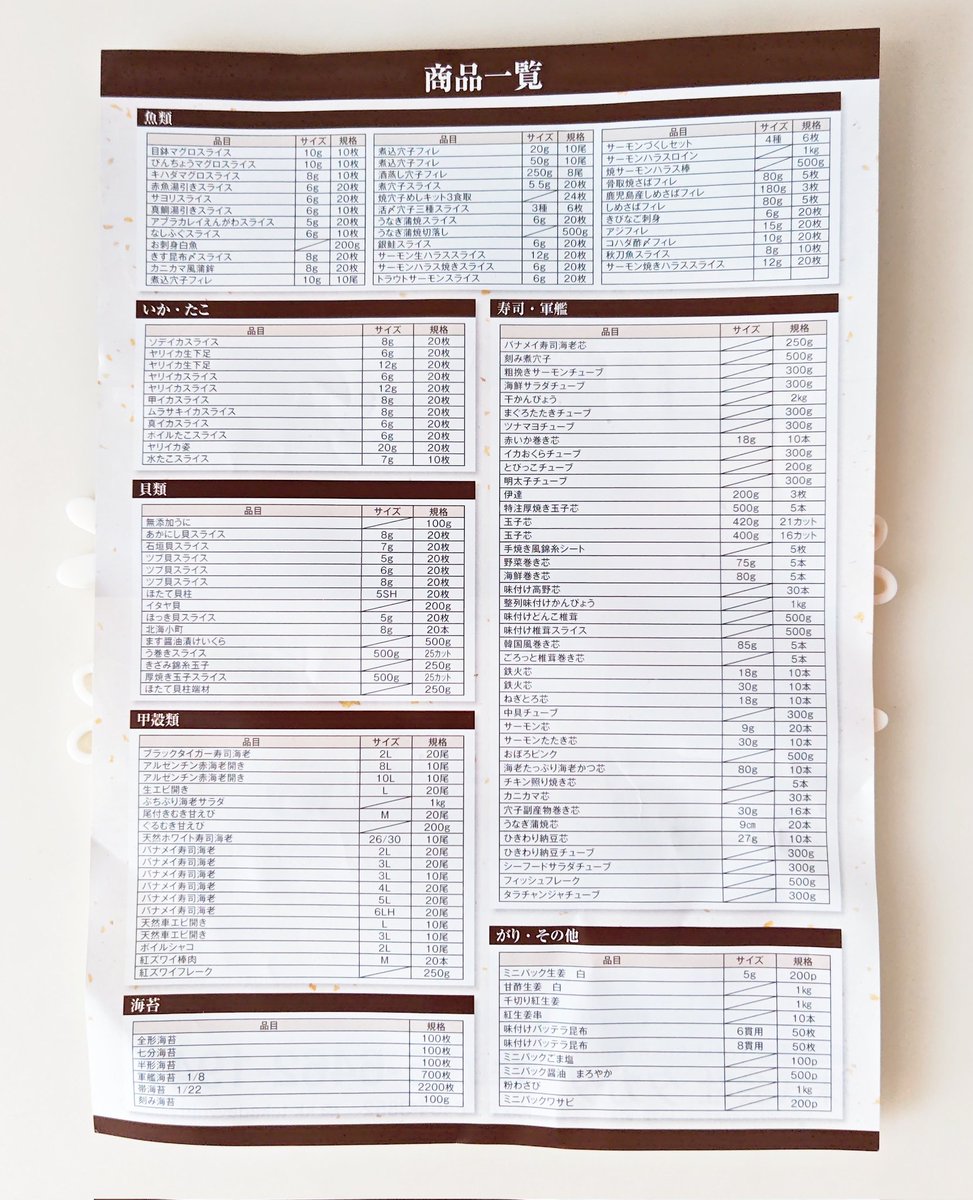 商品一覧
魚類
品目 サイズ 規格
目鉢マグロスライス 10g 10枚
びんちょうマグロスライス 10g 10枚
キハダマグロスライス 8g 10枚
赤魚湯引きスライス 6g 20枚
サヨリスライス 6g 20枚
真鯛湯引きスライス 6g 10枚
アブラカレイえんがわスライス 5g 20枚
なしふぐスライス 6g 10枚
お刺身白魚 200g
きす昆布〆スライス 8g 20枚
カニカマ風蒲鉾 8g 20枚
煮込穴子フィレ 10g 10尾
品目 サイズ 規格
煮込穴子フィレ 20g 10尾
煮込穴子フィレ 50g 10尾
酒蒸し穴子フィレ 250g 8尾
煮穴子スライス 5.5g 20枚
焼穴子めしキット3食取 24枚
活〆穴子三種スライス 3種 6枚
うなぎ蒲焼スライス 6g 20枚
うなぎ蒲焼切落し 500g
銀鮭スライス 6g 20枚
サーモン生ハラススライス 12g 20枚
サーモンハラス焼きスライス 6g 20枚
トラウトサーモンスライス 6g 20枚
品目 サイズ 規格
サーモンづくしセット 4種 6枚
サーモンハラスロイン 1kg
焼サーモンハラス棒 500g
骨取焼さばフィレ 80g 5枚
鹿児島産しめさばフィレ 180g 3枚
しめさばフィレ 80g 5枚
きびなご刺身 6g 20枚
アジフィレ 15g 20枚
コハダ酢〆フィレ 10g 20枚
秋刀魚スライス 8g 10枚
サーモン焼きハラススライス 12g 20枚
いか・たこ
品目 サイズ 規格
ソデイカスライス 8g 20枚
ヤリイカ生下足 6g 20枚
ヤリイカ生下足 12g 20枚
ヤリイカスライス 6g 20枚
ヤリイカスライス 12g 20枚
甲イカスライス 8g 20枚
ムラサキイカスライス 8g 20枚
真イカスライス 6g 20枚
ボイルたこスライス 6g 20枚
ヤリイカ姿 20g 20枚
水たこスライス 7g 10枚
貝類
品目 サイズ 規格
無添加うに 100g
あかにし貝スライス 8g 20枚
石垣貝スライス 7g 20枚
ツブ貝スライス 5g 20枚
ツブ貝スライス 6g 20枚
ツブ貝スライス 8g 20枚
ほたて貝柱 5SH 20枚
イタヤ貝 200g
ほっき貝スライス 5g 20枚
北海小町 8g 20本
ます醤油漬けいくら 500g
う巻きスライス 500g 25カット
きざみ錦糸玉子 250g
厚焼き玉子スライス 500g 25カット
ほたて貝柱端材 250g
甲殻類
品目 サイズ 規格
ブラックタイガー寿司海老 2L 20尾
アルゼンチン赤海老開き 8L 10尾
アルゼンチン赤海老開き 10L 10尾
生エビ開き L 20尾
ぷちぷり海老サラダ 1kg
尾付きむき甘えび M 20尾
くるむき甘えび 200g
天然ホワイト寿司海老 26/30 10尾
バナメイ寿司海老 2L 20尾
バナメイ寿司海老 3L 20尾
バナメイ寿司海老 3L 10尾
バナメイ寿司海老 4L 20尾
バナメイ寿司海老 5L 20尾
バナメイ寿司海老 6LH 20尾
天然車エビ開き L 10尾
天然車エビ開き 3L 10尾
ボイルシャコ 2L 10尾
紅ズワイ棒肉 M 20本
紅ズワイフレーク 250g
海苔
品目 規格
全形海苔 100枚
七分海苔 100枚
半形海苔 100枚
軍艦海苔 1/8 700枚
帯海苔 1/22 2200枚
刻み海苔 100g
寿司・軍艦
品目 サイズ 規格
バナメイ寿司海老芯 250g
刻み煮穴子 500g
粗挽きサーモンチューブ 300g
海鮮サラダチューブ 300g
干かんぴょう 2kg
まぐろたたきチューブ 300g
ツナマヨチューブ 300g
赤いか巻き芯 18g 10本
イカおくらチューブ 300g
とびっこチューブ 200g
明太子チューブ 300g
伊達 200g 3枚
特注厚焼き玉子芯 500g 5本
玉子芯 420g 21カット
玉子芯 400g 16カット
手焼き風錦糸シート 5枚
野菜巻き芯 75g 5本
海鮮巻き芯 80g 5本
味付け高野芯 30本
整列味付けかんぴょう 1kg
味付けどんこ椎茸 500g
味付け椎茸スライス 500g
韓国風巻き芯 85g 5本
ごろっと椎茸巻き芯 5本
鉄火芯 18g 10本
鉄火芯 30g 10本
ねぎとろ芯 18g 10本
中貝チューブ 300g
サーモン芯 9g 20本
サーモンたたき芯 30g 10本
おぼろピンク 500g
海老たっぷり海老かつ芯 80g 10本
チキン照り焼き芯 5本
カニカマ芯 30本
穴子副産物巻き芯 30g 16本
うなぎ蒲焼芯 9cm 20本
ひきわり納豆芯 27g 10本
ひきわり納豆チューブ 300g
シーフードサラダチューブ 300g
フィッシュフレーク 500g
タラチャンジャチューブ 300g
がり・その他
品目 サイズ 規格
ミニパック生姜 白 5g 200p
甘酢生姜 白 1kg
千切り紅生姜 1kg
紅生姜串 10本
味付けバッテラ昆布 6貫用 50枚
味付けバッテラ昆布 8貫用 50枚
ミニパックごま塩 100p
ミニパック醤油 まろやか 500p
粉わさび 1kg
ミニパックワサビ 200p